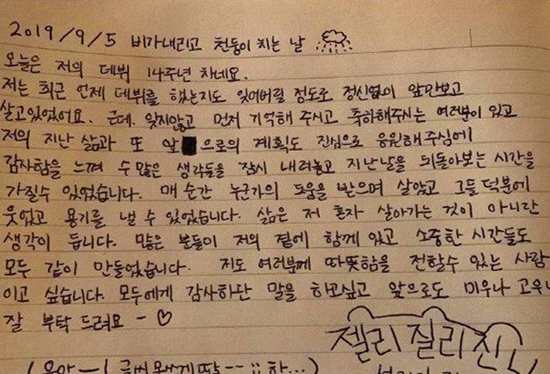 2019/9/5 비가내리고 천둥이 치는 날
오늘은 저의 데뷔 14주년 차네요.
저는 최근 언제 데뷔를 했는지도 잊어버릴 정도로 정신없이 앞만보고
살고있었어요. 근데, 잊지않고 먼저 기억해 주시고 축하해주시는 여러분이 있고
저의 지난 삶과 또 앞으로의 계획도 진심으로 응원해주심에
감사함을 느껴 수 많은 생각들을 잠시 내려놓고 지난날을 되돌아보는 시간을
가질수 있었습니다. 매 순간 누군가의 도움을 받으며 살았고 그들 덕분에
웃었고 용기를 낼 수 있었습니다. 삶은 저 혼자 살아가는 것이 아니란
생각이 듭니다. 많은 분들이 저의 곁에 함께 있고 소중한 시간들도
모두 같이 만들었습니다. 저도 여러분께 따뜻함을 전할수 있는 사람
이고 싶습니다. 모두에게 감사하단 말을 하고싶고 앞으로도 미우나 고우나
잘 부탁 드려요 - ♡
젤리질리진